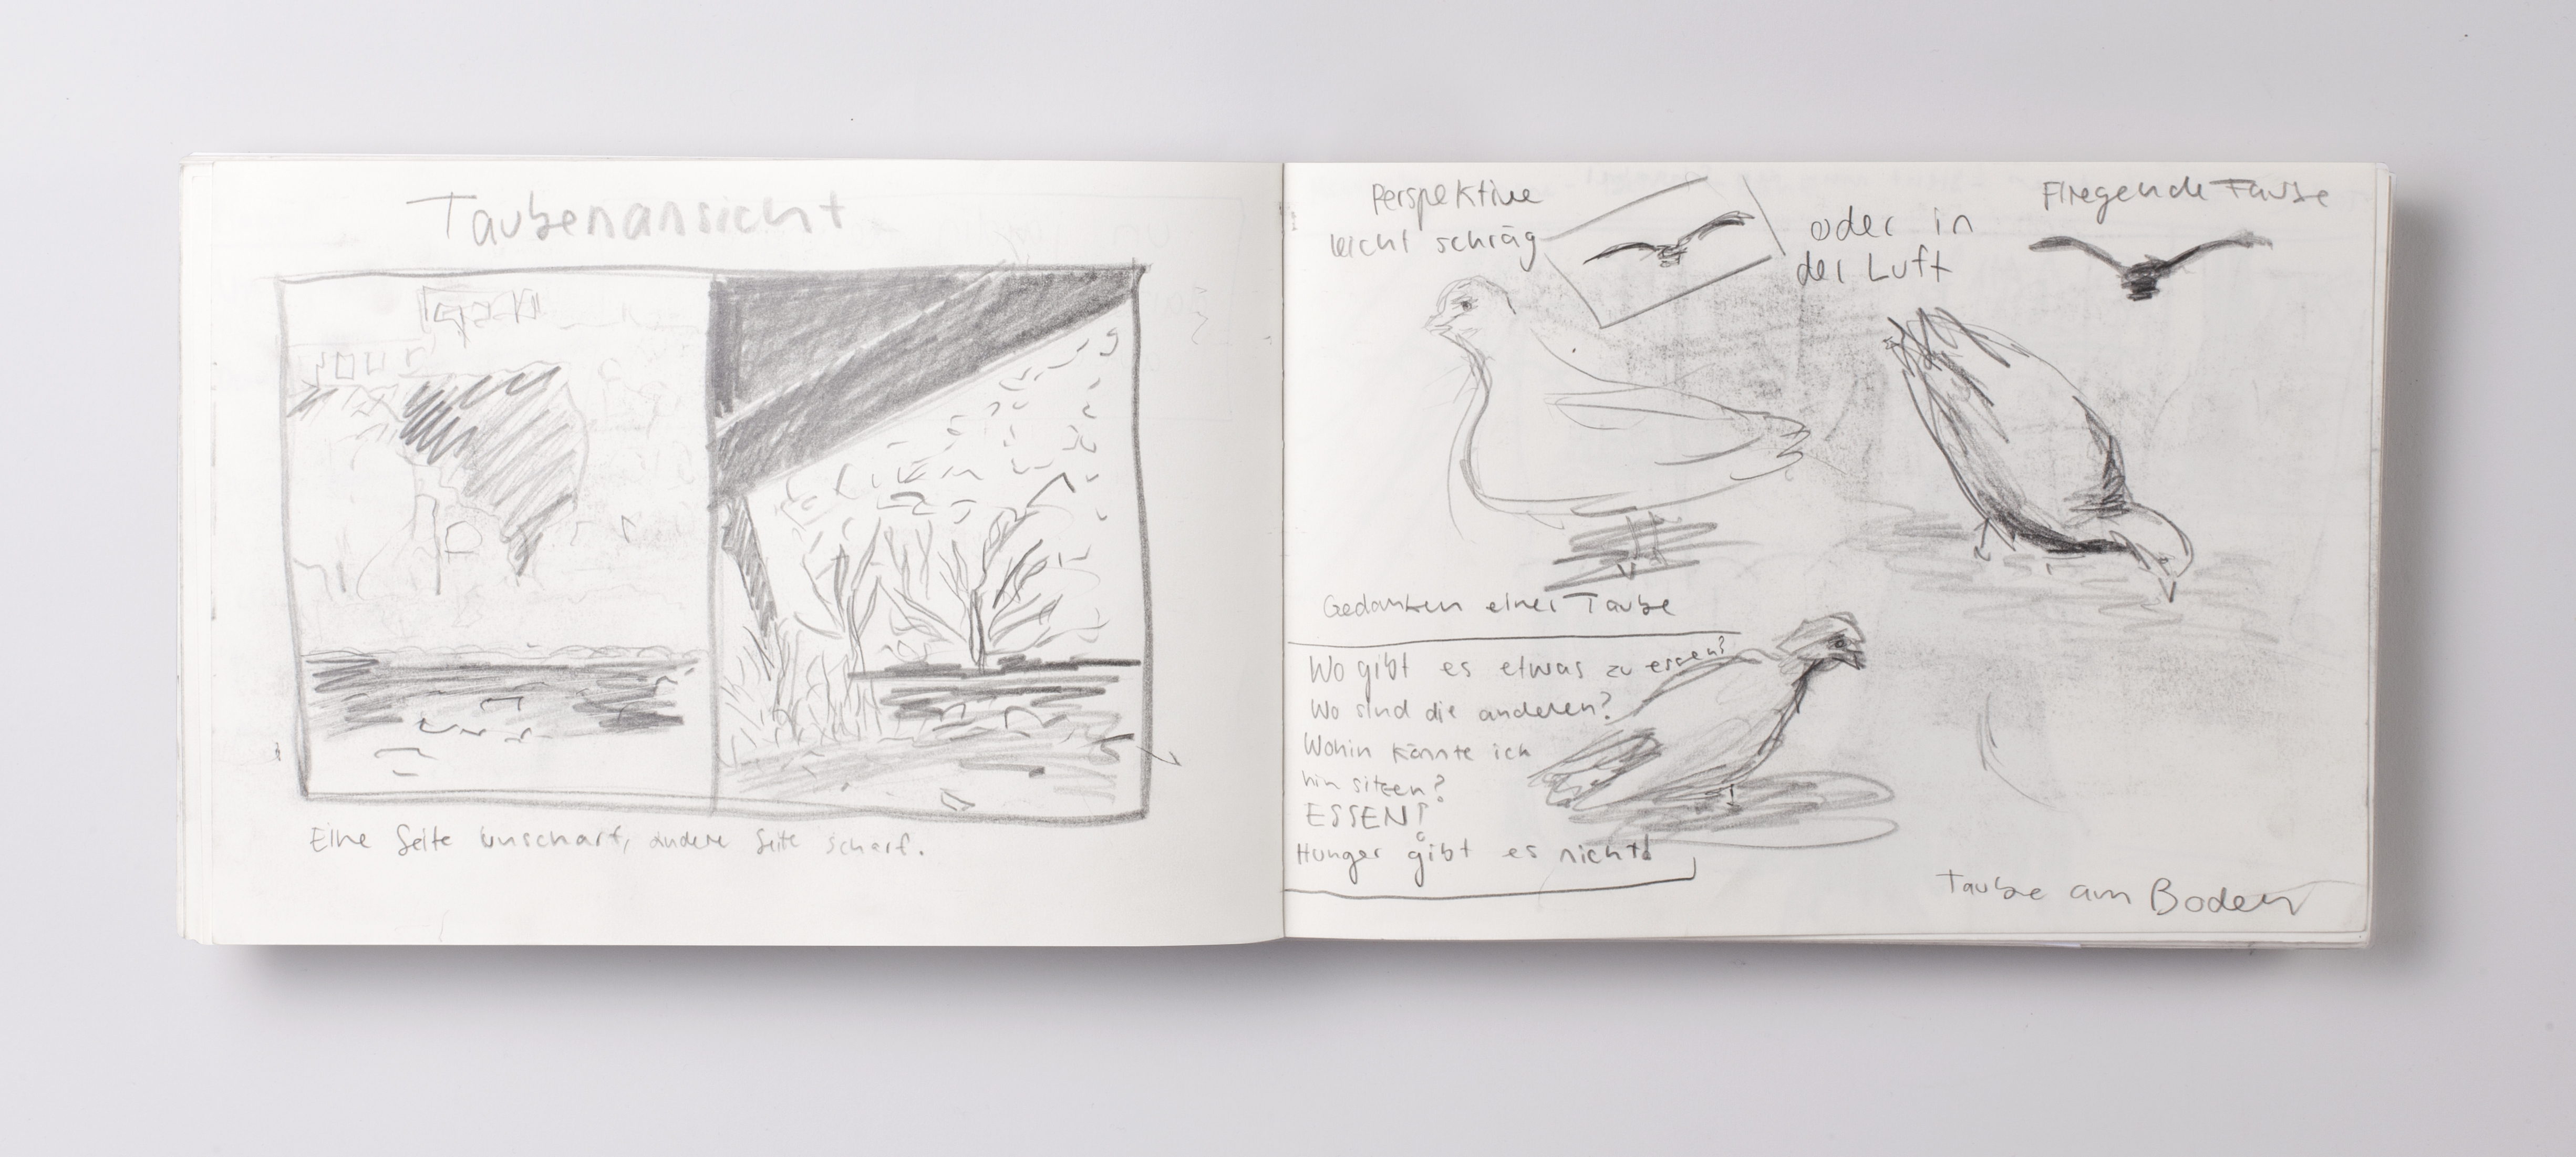 Taubenansicht
Eine Seite unscharf, andere Seite scharf.
Perspektive
leicht schräg
oder in
der Luft
Fliegende Taube
Gedanken einer Taube
Wo gibt es etwas zu essen?
Wo sind die anderen?
Wohin könnte ich
hin sitzen?
ESSEN!
Hunger gibt es nicht!
Taube am Boden